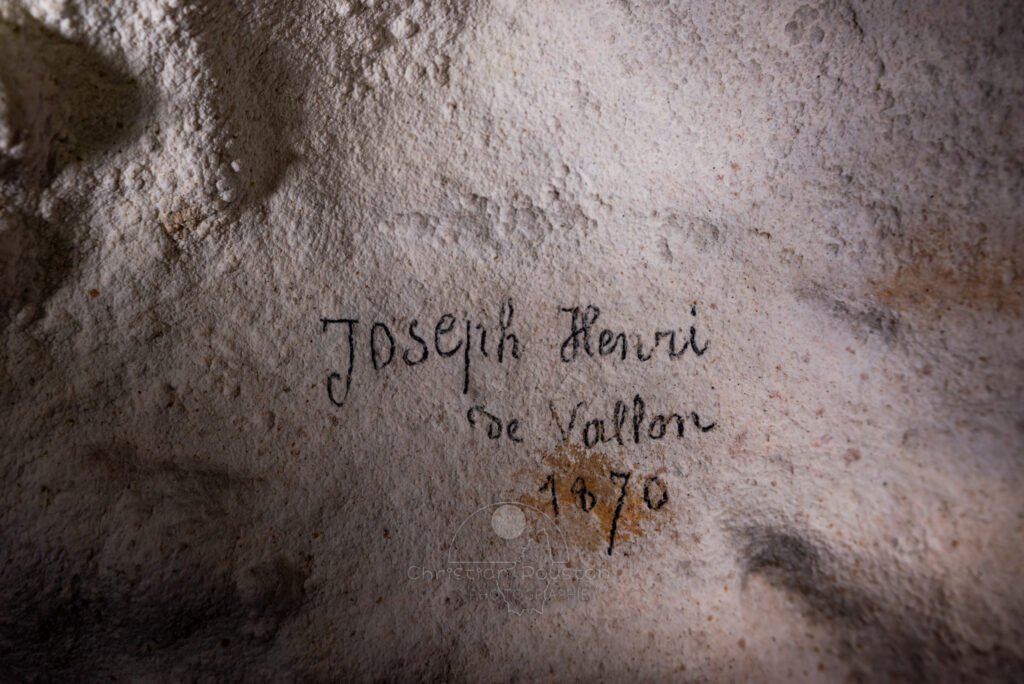 Joseph Henri
de Vallon
1870
Christian
PHOTOGRAPHIE